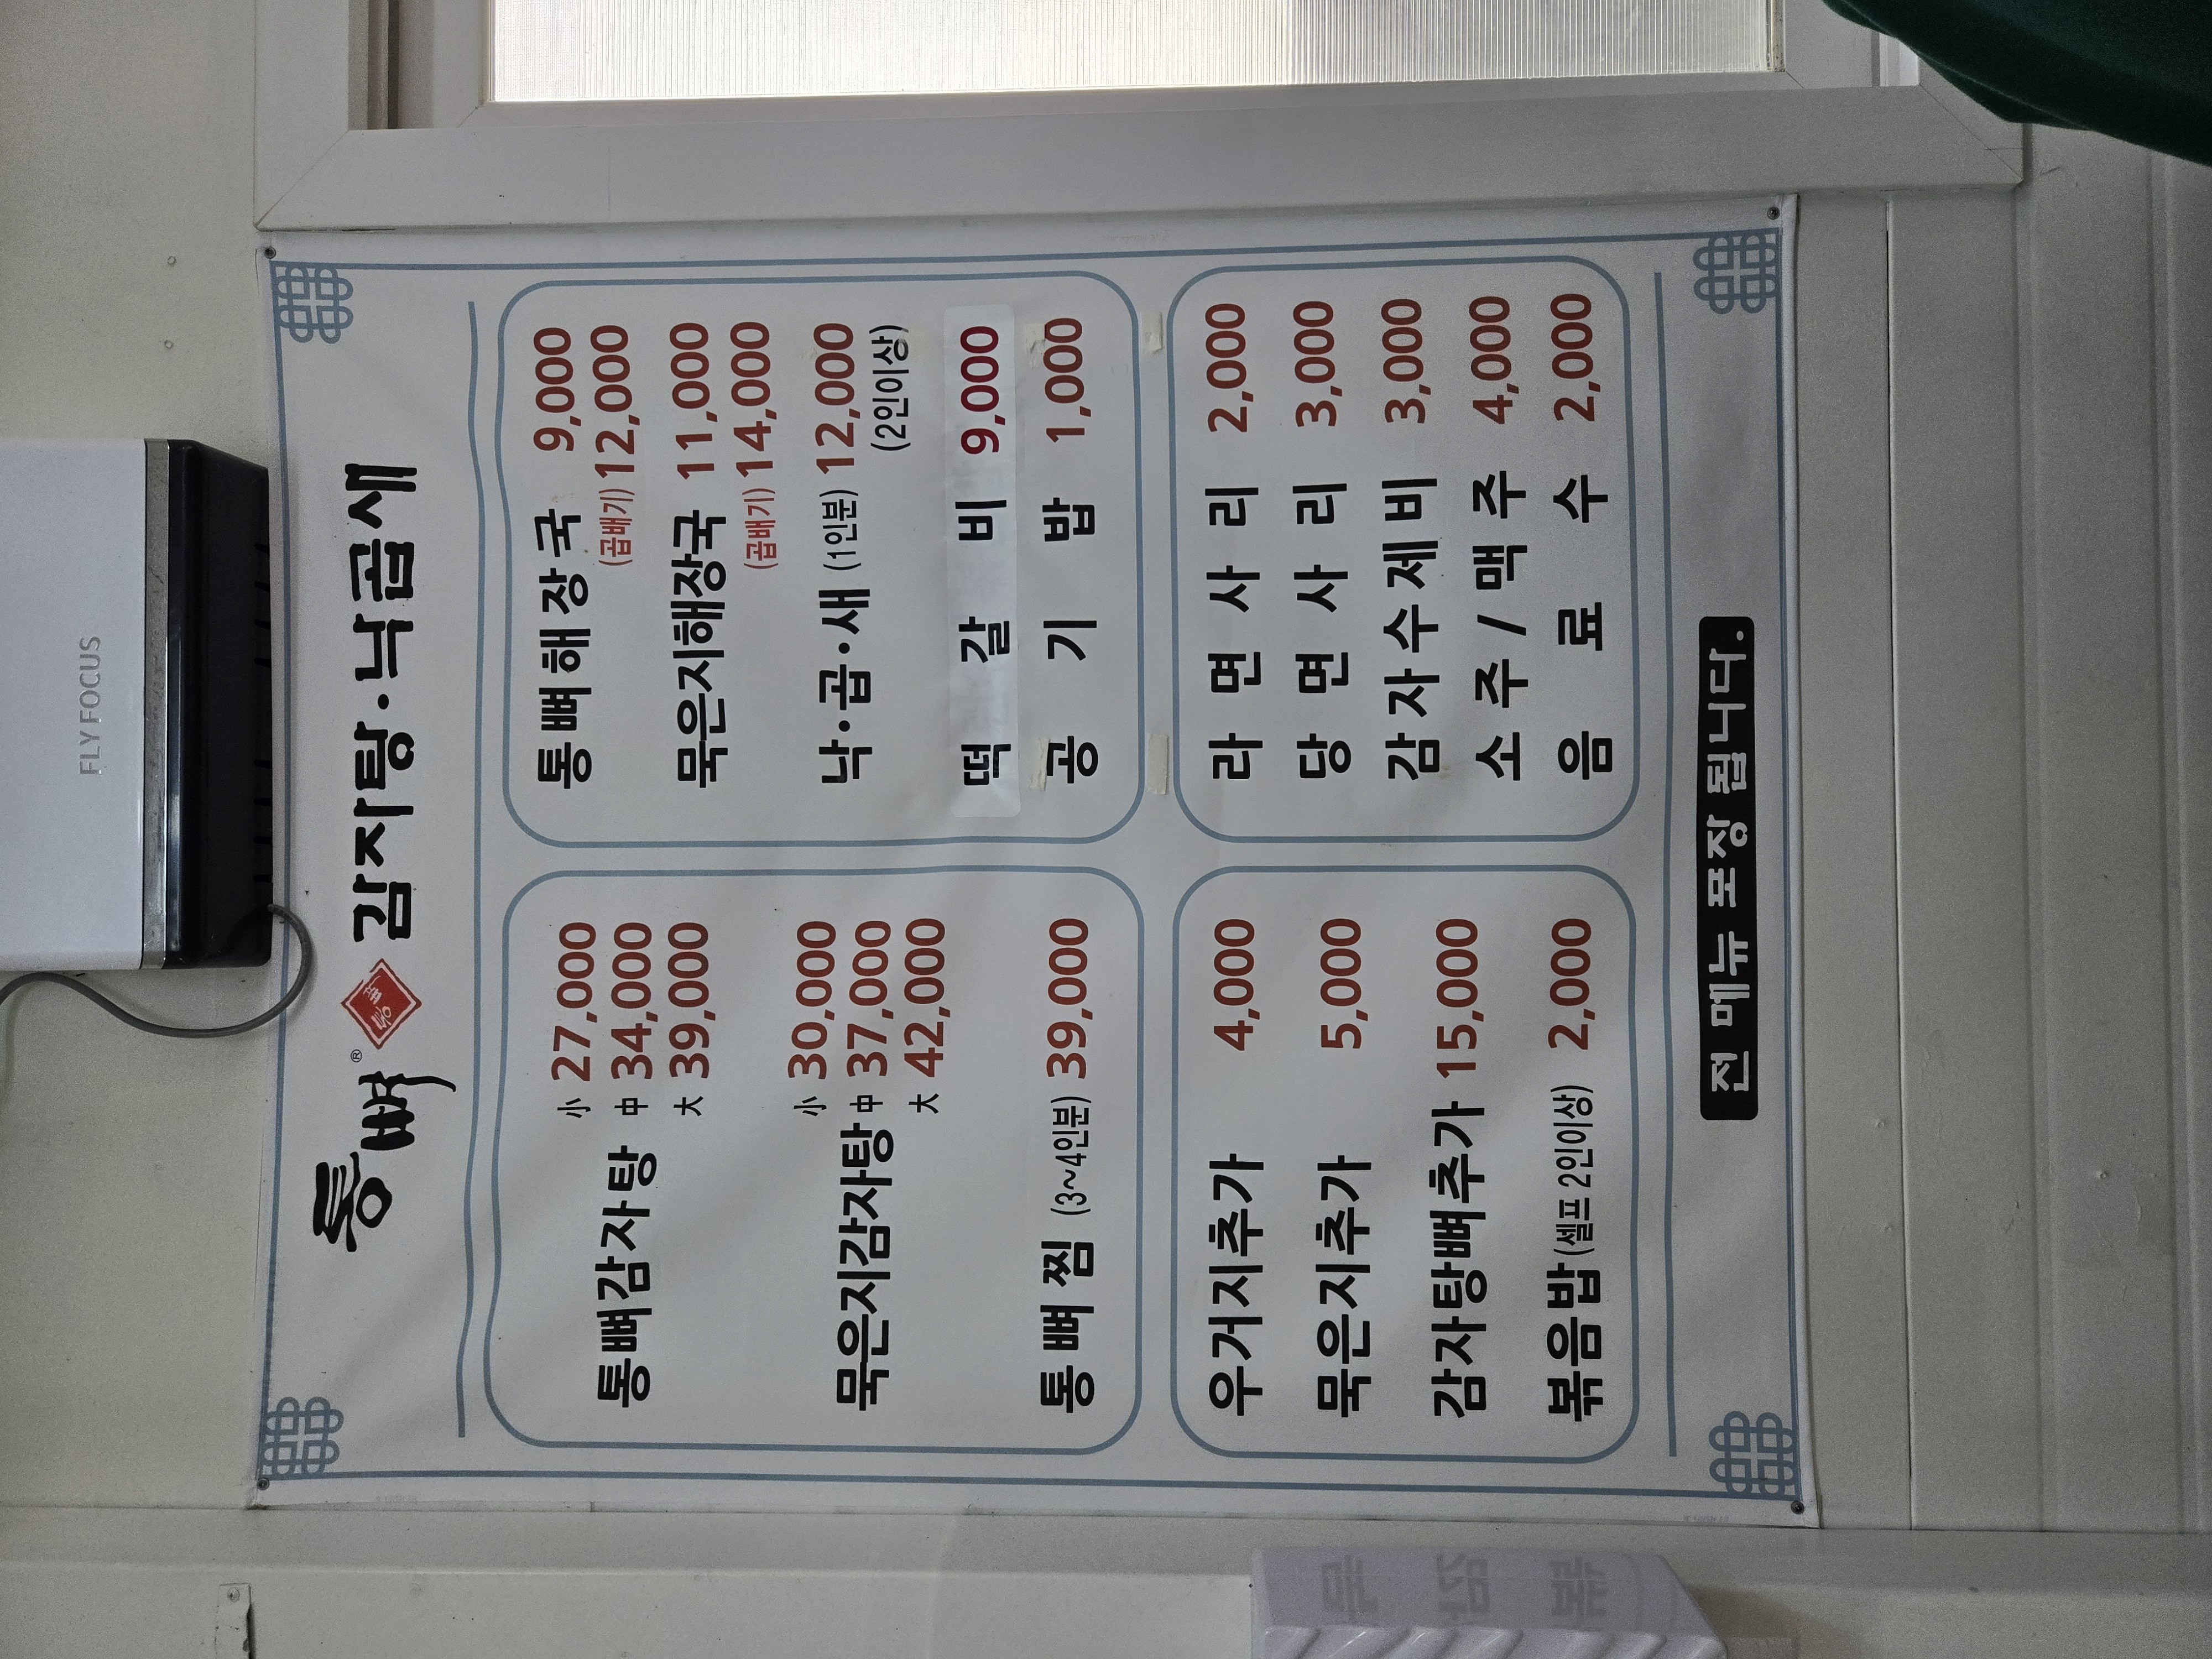 FLY FOCUS
통뼈® 통뼈 감자탕·낙곱새
통뼈감자탕 小 27,000
中 34,000
大 39,000
묵은지감자탕 小 30,000
中 37,000
大 42,000
통뼈찜 (3~4인분) 39,000
통뼈해장국 9,000
(곱빼기) 12,000
묵은지해장국 11,000
(곱빼기) 14,000
낙·곱·새 (1인분) 12,000
(2인이상)
떡갈비 9,000
공기밥 1,000
우거지추가 4,000
묵은지추가 5,000
감자탕뼈추가 15,000
볶음밥(셀프 2인이상) 2,000
라면사리 2,000
당면사리 3,000
감자수제비 3,000
소주/맥주 4,000
음료수 2,000
전 메뉴 포장 됩니다.